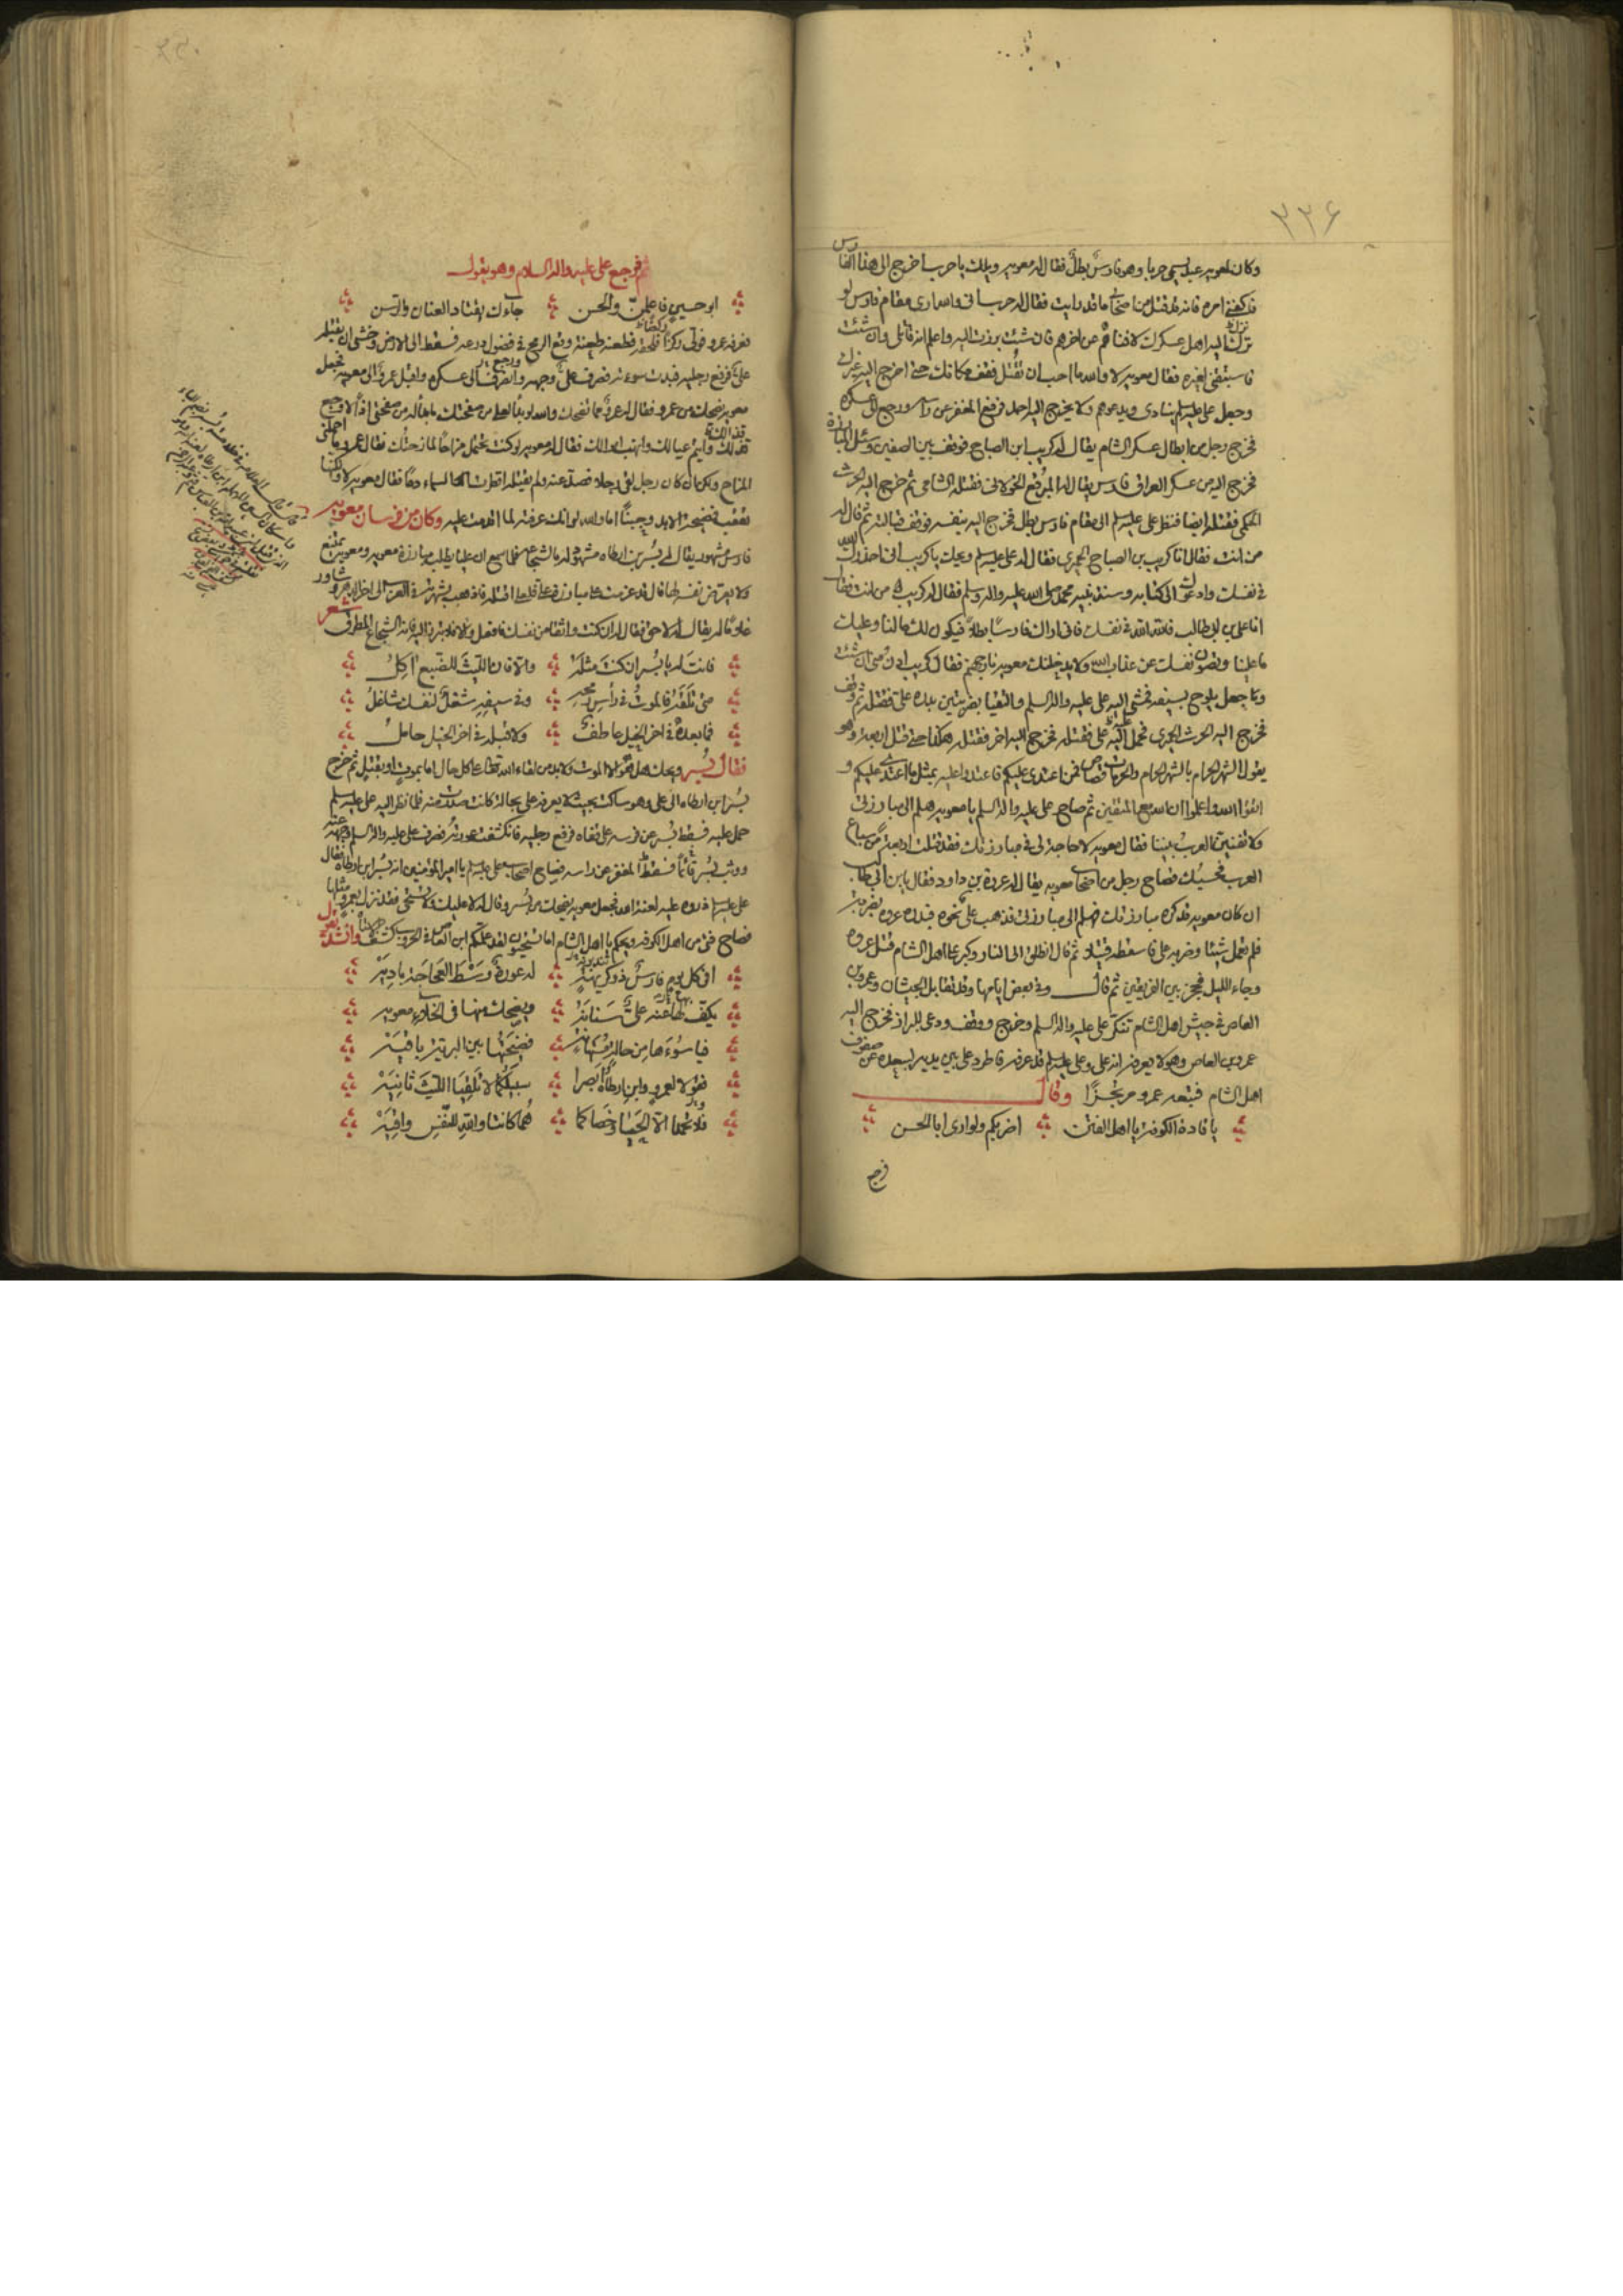 ٣٣۶
وكان لمعويه عبد يسمى حربا وهو فارس بطل فقال له معويه ويلك يا حرب اخرج الى هذا الفارس
فاكفني امره فانه قد قتل من اصحابي ما قد رايت فقال له حرب انى والله ارى مقام فارس لو
برز اليه اهل عسكرك لافناهم عن اخرهم فان شئت برزت اليه واعلم انه قاتلي وان شئت
فاستبقني لغيره فقال معويه لا والله ما احب ان تقتل فقف مكانك حتى اخرج اليه غيرك
وجعل على عليه السلم ينادى ويدعوهم ولا يخرج اليه احد فرفع المغفر عن راسه ورجع الى عسكره
فخرج رجل من ابطال عسكر الشام يقال له كريب ابن الصباح فوقف بين الصفين وسئل المبارزة
فخرج اليه من عسكر العراق فارس يقال له المبرقع الخولانى فقتله الشامى ثم خرج اليه الحرث
الحكمى فقتله ايضا فنظر على عليه السلم الى مقام فارس بطل فخرج اليه بنفسه فوقف قبالته ثم قال له
من انت فقال انا كريب بن الصباح الحميرى فقال له على عليه السلم ويحك يا كريب انى احذرك الله
فى نفسك وادعوك الى كتابه وسنة نبيه محمد صلى الله عليه واله وسلم فقال له كريب من انت فقال
انا على بن ابى طالب فالله الله فى نفسك فانى اراك فارسا بطلا فيكون لك ما لنا وعليك
ما علينا وتصون نفسك عن عذاب الله ولا يدخلنك معويه نار جهنم فقال كريب ادن منى ان شئت
وجعل يلوح بسيفه فمشى اليه على عليه واله السلم والتقيا بضربتين بدره على فقتله ثم وقف
فخرج اليه الحرث الحميرى فحمل عليه على فقتله فخرج اليه اخر فقتله هكذا حتى قتل اربعة وهو
يقول الشهر الحرام بالشهر الحرام والحرمات قصاص فمن اعتدى عليكم فاعتدوا عليه بمثل ما اعتدى عليكم و
اتقوا الله واعلموا ان الله مع المتقين ثم صاح على عليه واله السلم يا معويه هلم الى مبارزتى
ولا تفنين العرب بيننا فقال معويه لا حاجة لى فى مبارزتك فقد قتلت اربعة من سباع
العرب فحسبك فصاح رجل من اصحاب معويه يقال له عروة بن داود فقال يا بن ابى طالب
ان كان معويه قد كره مبارزتك فهلم الى مبارزتى فذهب على نحوه فبدره عروه بضربة
فلم تعمل شيئا وضربه على فاسقطه قتيلا ثم قال انطلق الى النار وكبر على اهل الشام قتل عروه
وجاء الليل فحجز بين الفريقين ثم قال وفى بعض ايامها وقد تقابل الجيشان وعمرو بن
العاص فى جيش اهل الشام تنكر على عليه واله السلم وخرج ووقف ودعى للبراز فخرج اليه
عمرو بن العاص وهو لا يعرفه انه على وعلى عليه السلم قد عرفه فاطرد على بين يديه ليبعده عن صفوف
اهل الشام فتبعه عمرو مرتجزا وقال
يا قادة الكوفة يا اهل الفتن اضربكم ولو ارى ابا الحسن
فرجع
ثم فرجع على عليه واله السلام وهو يقول
ابو حسين فاعلمن والحسن جاءك يقتاد العنان والرسن
فعرفه عمرو فولى ركضا فلحقه فطعنه طعنة وقع الرمح فى فضول درعه فسقط الى الارض وخشى ان يقتله
على فرفع رجليه فبدت سوءته فصرف على وجهه وانصرف الى عسكره واقبل عمرو الى معويه فجعل
معويه يضحك من عمرو فقال له عمرو مما تضحك والله لو بدا لعلى من صفحتك ما بدا له من صفحتى اذا لاوجع
قذالك وايتم عيالك وانهب اموالك فقال له معويه لو كنت تحتمل مزاحا لمازحتك فقال عمرو ما احملنى
المزاح ولكن ان كان رجل لقى رجلا فصد عنه ولم يقتله اقطرت السماء دما فقال معويه لا ولكنها
تعقب فضيحة الابد وجبنا اما والله لو انك عرفته لما اقدمت عليه وكان من فرسان معويه
فارس مشهور يقال له بسر بن ارطاه مشهور له بالشجاعة فلما سمع ان عليا يطلب مبارزة معويه ومعويه يمتنع
ولا يعرض نفسه لها قال قد عزمت على مبارزة على فلعلى اقتله فاذهب بشهرته فى العرب الى اخر الدهر وشاور
غلاما له يقال له لاحق فقال له ان كنت واثقا من نفسك فافعل والا فلا تبرز اليه فانه الشجاع المطرق شعر
فانت له يا بسر ان كنت مثله والا فان الليث للضبع اكل
متى تلقه فالموت فى راس رمحه وفى سيفه شغل لنفسك شاغل
فما بعده فى اخر الخيل عاطف ولا قبله فى اخر الخيل حامل
فقال بسر ويحك هل هو الا الموت ولا بد من لقاء الله تعالى على كل حال اما بموت او بقتل ثم خرج
بسر بن ارطاه الى على وهو ساكت بحيث لا يعرفه على بحالة كانت صدرت منه فلما نظر اليه على عليه السلم
حمل عليه فسقط بسر عن فرسه على قفاه فرفع رجليه فانكشفت عورته فصرف على عليه واله السلم وجهه عنه
ووثب بسر قائما فسقط المغفر عن راسه فصاح اصحاب على عليه السلم يا امير المؤمنين انه بسر بن ارطاه فقال
على عليه السلم ذروه عليه لعنة الله فجعل معويه يضحك من بسر وقال له لا عليك ولا تستحى فقد نزل بعمرو مثلها
فصاح فتى من اهل الكوفه ويحكم يا اهل الشام اما تستحيون لقد علمكم ابن العاص فى الحروب كشف الاستاه وانشد يقول
افى كل يوم فارس ذو كريهة له عورة وسط العجاجة باديه
يكف لها عنه على سنانه ويضحك منها فى الخلاء معويه
فيا سوءها من حالة فضحتها بين البرية باقيه
فقولا لعمرو وابن ارطاه ابصرا سبيلكما لا تلقيا الليث ثانيه
فلا تحمدا الا الحيا وخصاكما هما كانتا والله للنفس واقيه